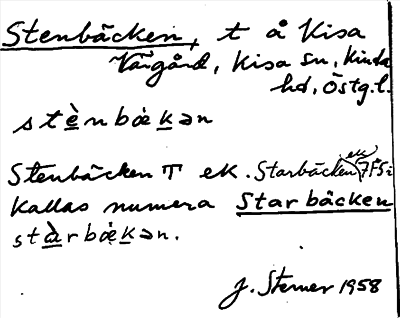 Stenbäcken, t å Kisa
Värgård, Kisa sn, Kinda
hd, Östg.l.
stènbäkən
Stenbäcken T ek. Starbäcken ek 7F5i
Kallas numera Starbäcken
stàrbäkən.
J. Sterner 1958